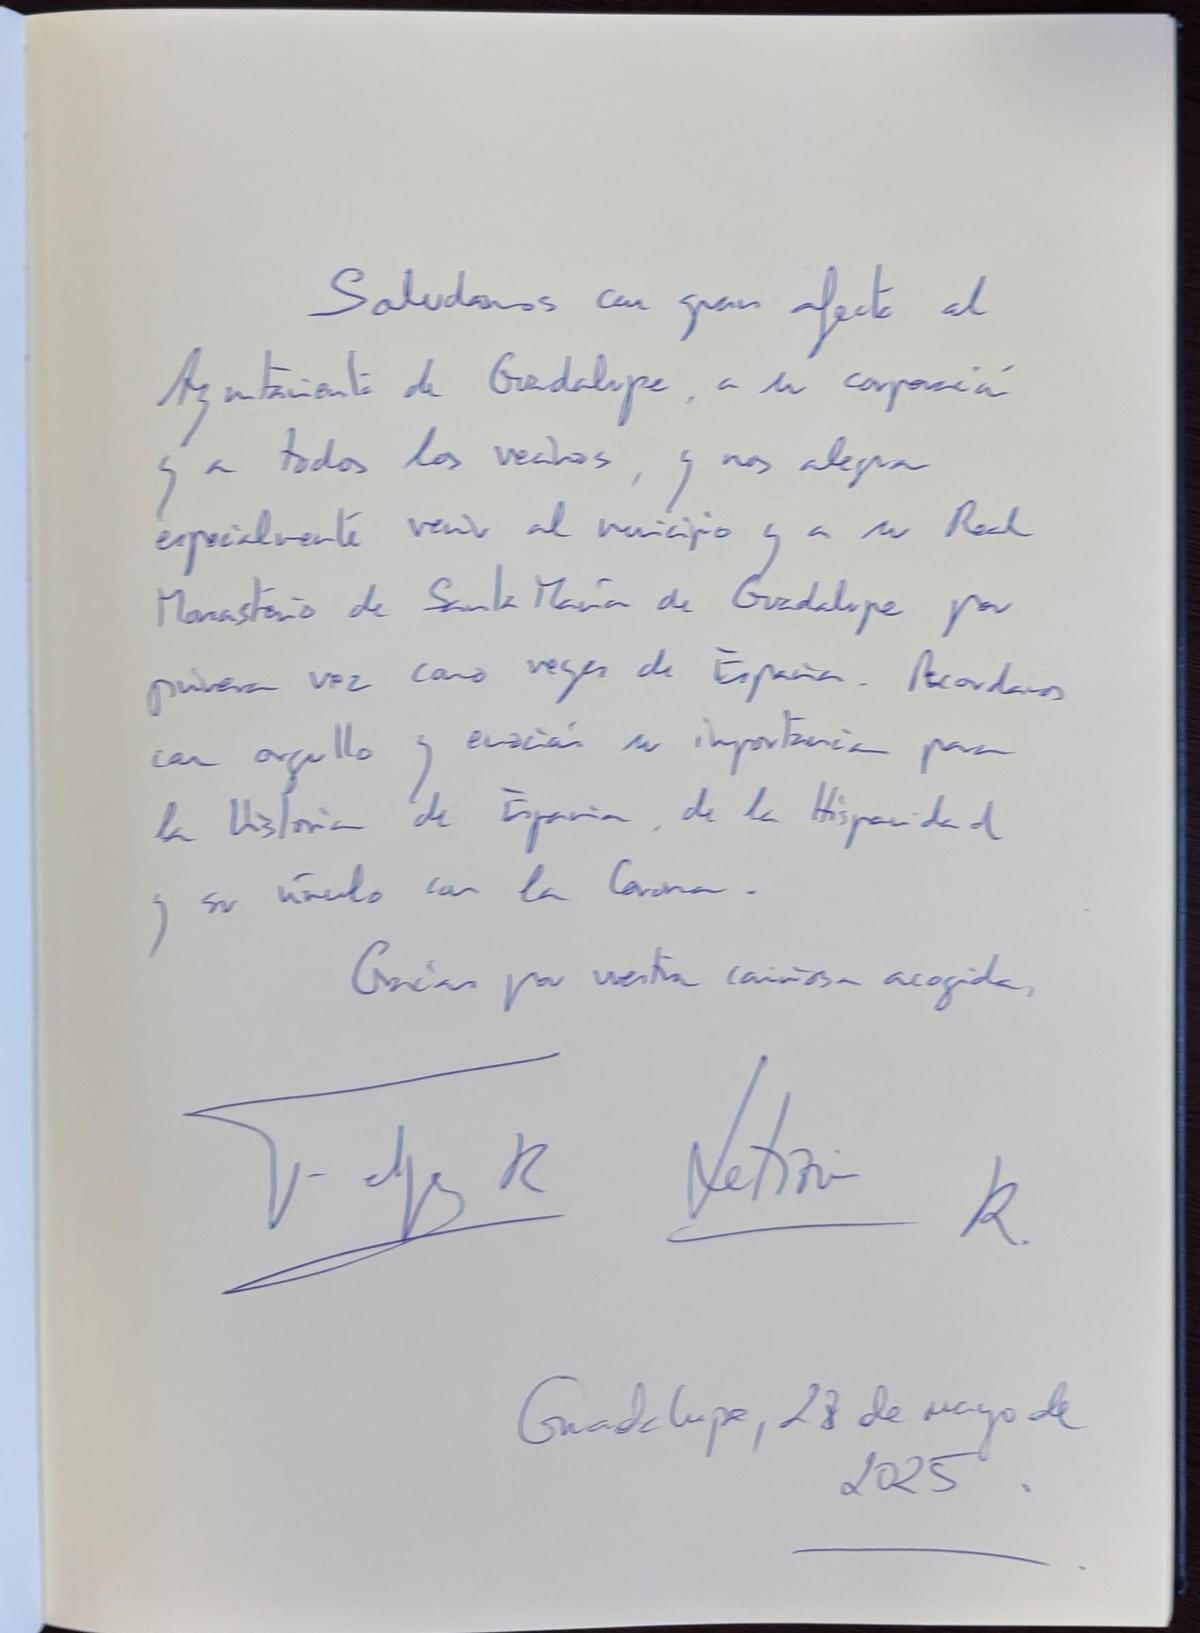 Saludamos con gran afecto al
Ayuntamiento de Guadalupe, a su corporación
y a todos los vecinos, y nos alegra
especialmente venir al municipio y a su Real
Monasterio de Santa María de Guadalupe por
primera vez como reyes de España. Recordamos
con orgullo y emoción su importancia para
la Historia de España, de la Hispanidad
y su vínculo con la Corona.
Gracias por vuestra cariñosa acogida,
Felipe R Letizia R.
Guadalupe, 28 de mayo de
2025.